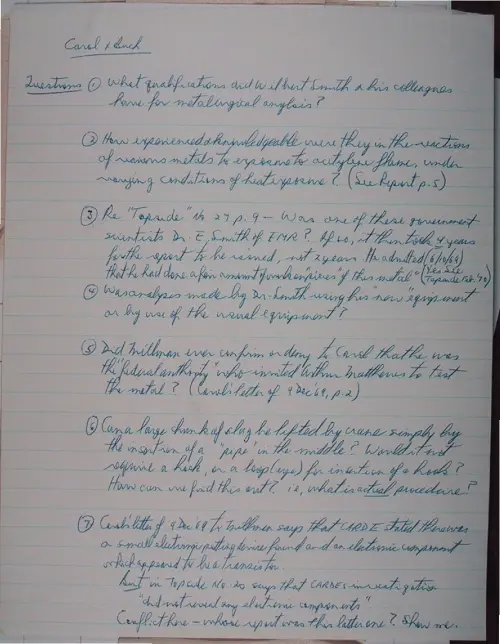 Carol & Buck
Questions ① What qualifications did Wilbert Smith & his colleagues
have for metallurgical analysis?
② How experienced & knowledgeable were they in the reactions
of various metals to exposure to acetylene flame, under
varying conditions of heat exposure? (See Report p. 5)
③ Re "Topside" No 27 p. 9 - Was one of these government
scientists Dr. E. Smith of EMR? If so, it then took 4 years
for the report to be issued, not 2 years. He admitted (6/10/69)
that he had done "a fair amount of work on pieces of this metal" (Yes see Topside
④ Was analysis made by Dr. Smith using his "new" equipment
or by use of the usual equipment?
⑤ Did Millman ever confirm or deny to Carol that he was
the "federal authority" who invited Arthur Matthews to test
the metal? (Carol's letter of 9 Dec '69, p. 2)
⑥ Can a large chunk of slag be lifted by crane simply by
the insertion of a 'pipe' in the middle? Wouldn't it
require a hook, or a loop (eye) for insertion of a hook?
How can we find this out? i.e., what is actual procedure?
⑦ Carol's letter of 9 Dec '69 to Millman says that CARDE stated there was
a small electronic putting device found and an electronic component
which appeared to be a transistor.
But in Topside No. 20 says that CARDE's investigation
"did not reveal any electronic components"
Conflict here - whose report was this latter one? Show me.